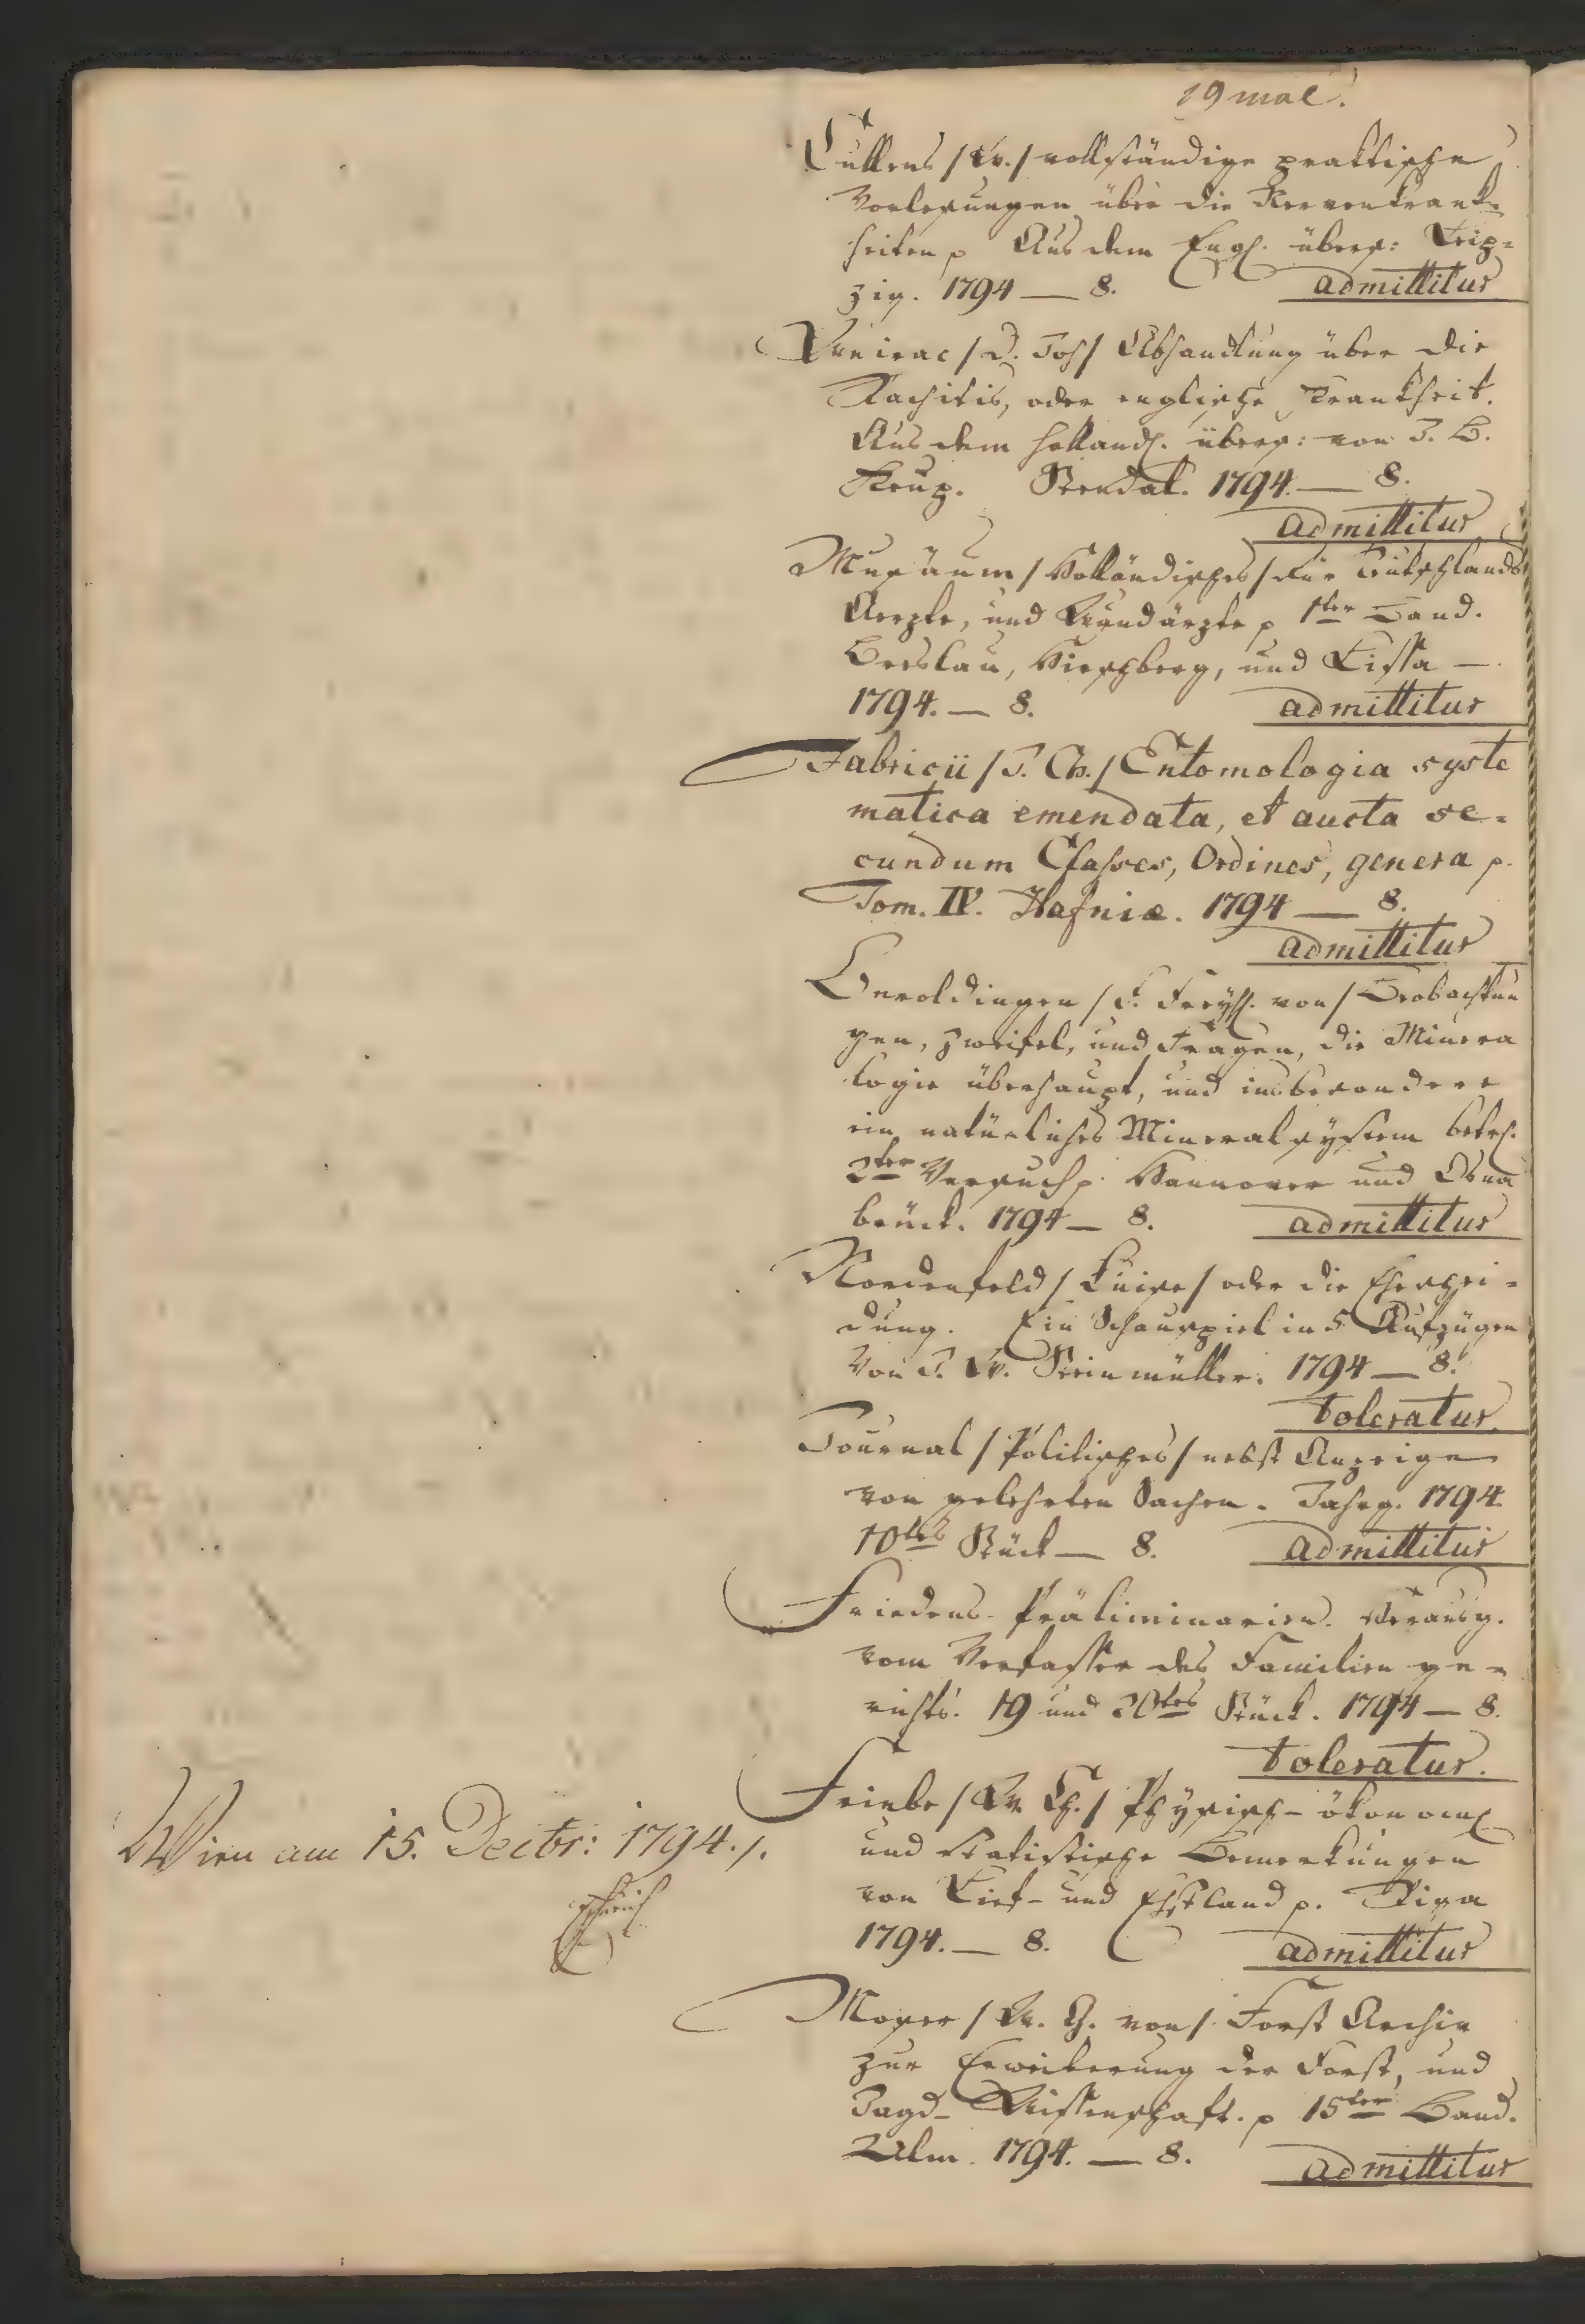 19 mal.
Cullens /W./ vollständige praktische
Vorlesungen über die Nervenkrank-
heiten p Aus dem Engl. übers: Leip-
zig. 1794 — 8. admittitur
Veirac /D. Joh/ Abhandlung über die
Rachitis, oder englische Krankheit.
Aus dem Holländ. übers: von J. B.
Keup. Stendal. 1794. — 8.
admittitur
Musäum /Holländisches/ für Teutschlands
Aerzte, und Wundärzte p 1ter Band.
Breslau, Hirschberg, und Lissa —
1794. — 8. admittitur
Fabricii /J. Ch./ Entomologia syste
matica emendata, et aucta se-
cundum Classes, Ordines, genera p.
Tom. IV. Hafniæ. 1794 — 8.
admittitur
Beroldingen /F. Freyh. von/ Beobachtun
gen, Zweifel, und Fragen, die Minera
logie überhaupt, und insbesondere
ein natürliches Mineralsystem betr.
2ter Versuch p. Hannover und Osna
brück. 1794 — 8. admittitur
Nordenfeld /Luise/ oder die Eheschei-
dung. Ein Schauspiel in 5 Aufzügen
Von J. W. Steinmüller. 1794 — 8.
toleratur.
Journal /Politisches/ nebst Anzeige
von gelehrten Sachen. Jahrg. 1794.
10tes Stück — 8. admittitur
Friedens-Präliminarien. Herausg.
vom Verfasser des Familien ge-
richts. 19 und 20tes Stück. 1794 — 8.
toleratur.
Friebe /W. Ch./ Physisch-ökonom.
und statistische Bemerkungen
von Lief- und Ehstland p. Riga
1794. — 8. admittitur
Moser /W. G. von/ Forst Archiv
zur Erweiterung der Forst, und
Jagd-Wissenschaft. p 15ter Band.
Ulm. 1794. — 8. admittitur
Wien am 15. Decbr: 1794./.